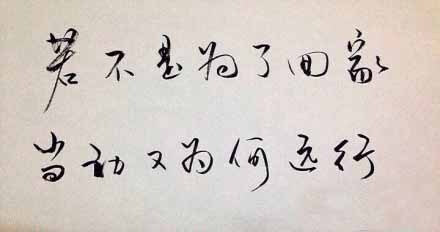 若不是为了回家
当初又为何远行